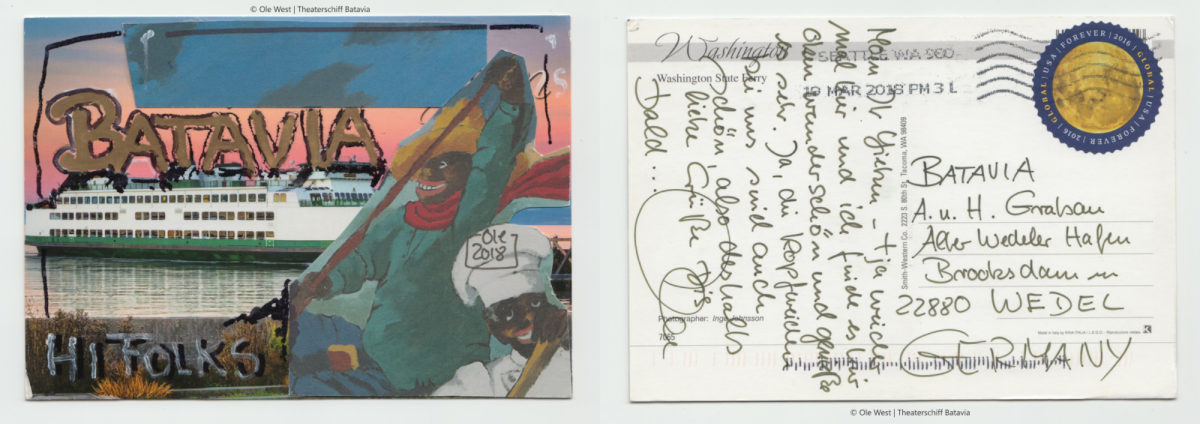 © Ole West | Theaterschiff Batavia
BATAVIA
Ole
2018
HI FOLKS
Washington
Washington State Ferry
SEATTLE WA 980
19 MAR 2018 PM 3 L
GLOBAL | USA | FOREVER | 2016 | GLOBAL | USA | FOREVER | 2016 |
Moin Ihr – tja wieder
mal hier und ich finde es hier
oben wunderschön und genieße
es sehr. Ja, die Kopfweiden
bei uns sind auch
schön, also deshalb
liebe Grüße bis
bald...
Ole
Smith-Western Co. 2223 S. 80th St. Tacoma, WA 98409
BATAVIA
A. u. H. Grabau
Alter Wedeler Hafen
Brooksdamm
22880 WEDEL
GERMANY
Photographer: Inge Johnsson
7065
Made in Italy by KINA ITALIA / L.E.G.O. - Reproductions retées
K
© Ole West | Theaterschiff Batavia